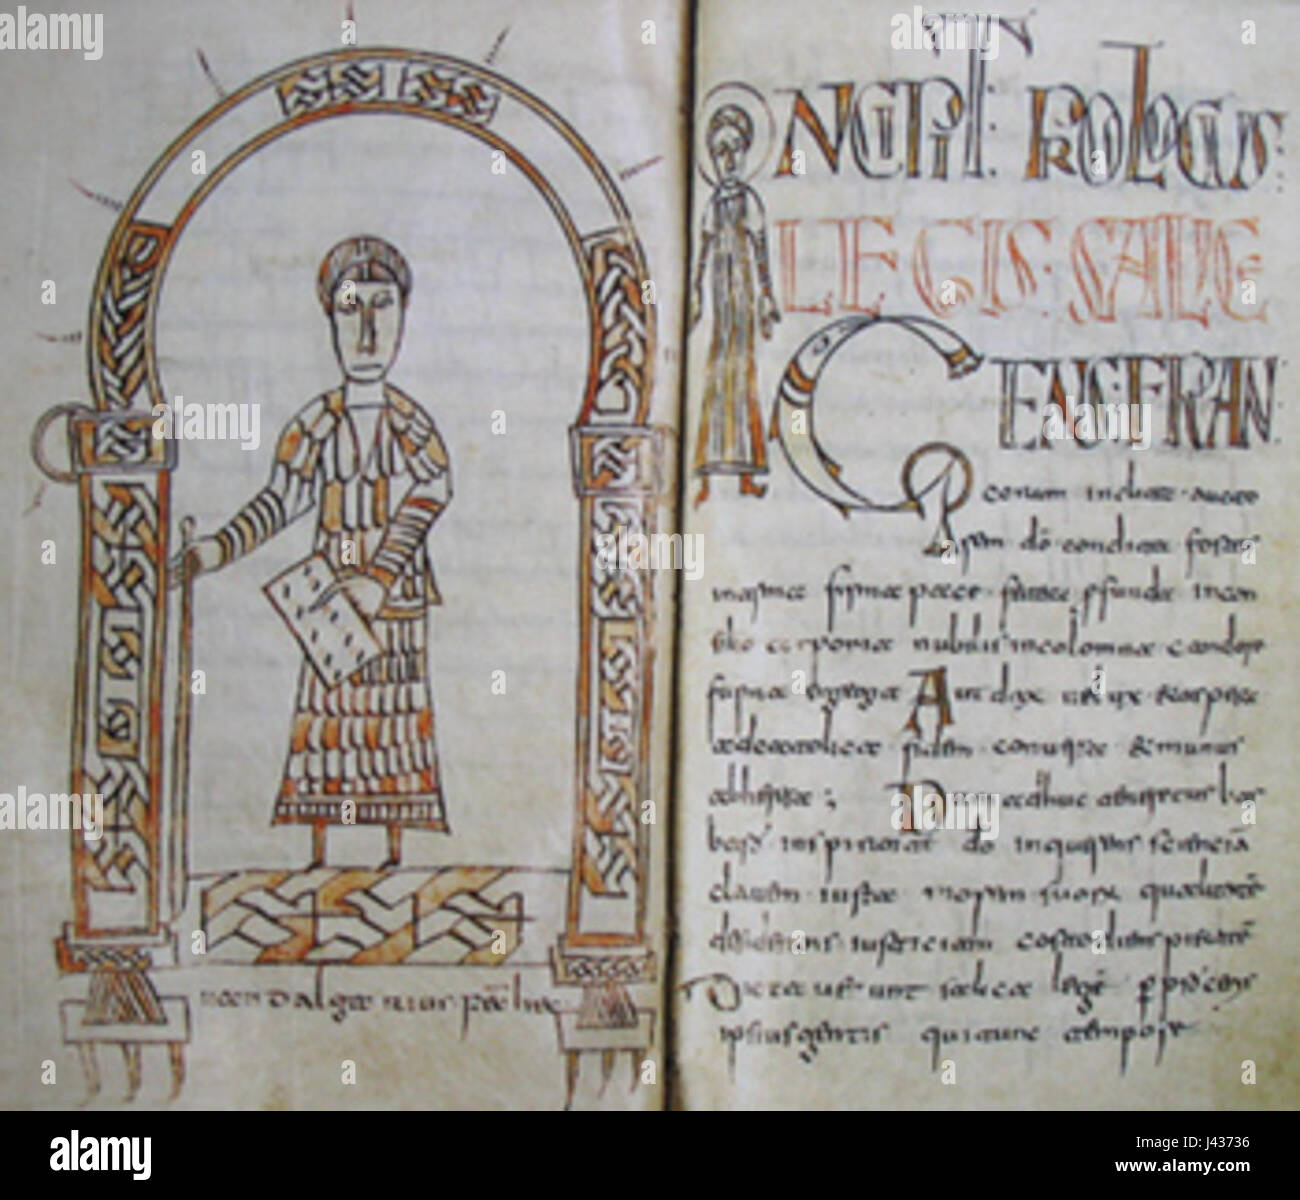 uuandalgarius fec hec
INCIPIT: PROLOGUS:
LEGIS: SALICE
GENS: FRAN
corum inclita auctore
dō condita fortis
in arma firma pacis profunda in con
silio corporea nobilis incolomna candore
forma egregia Audax velox et aspera
ad catholica fidem conversa et munis
ab herese; Dum adhuc
inspirante dō inquirens scienciā
clavem iuxta morum suorum qualitatē
desiderans iusticiam costodiens pietatē
Dictaverunt salica legē per proceris
ipsius gentis qui tunc tempore
alamy
J43736
www.alamy.com